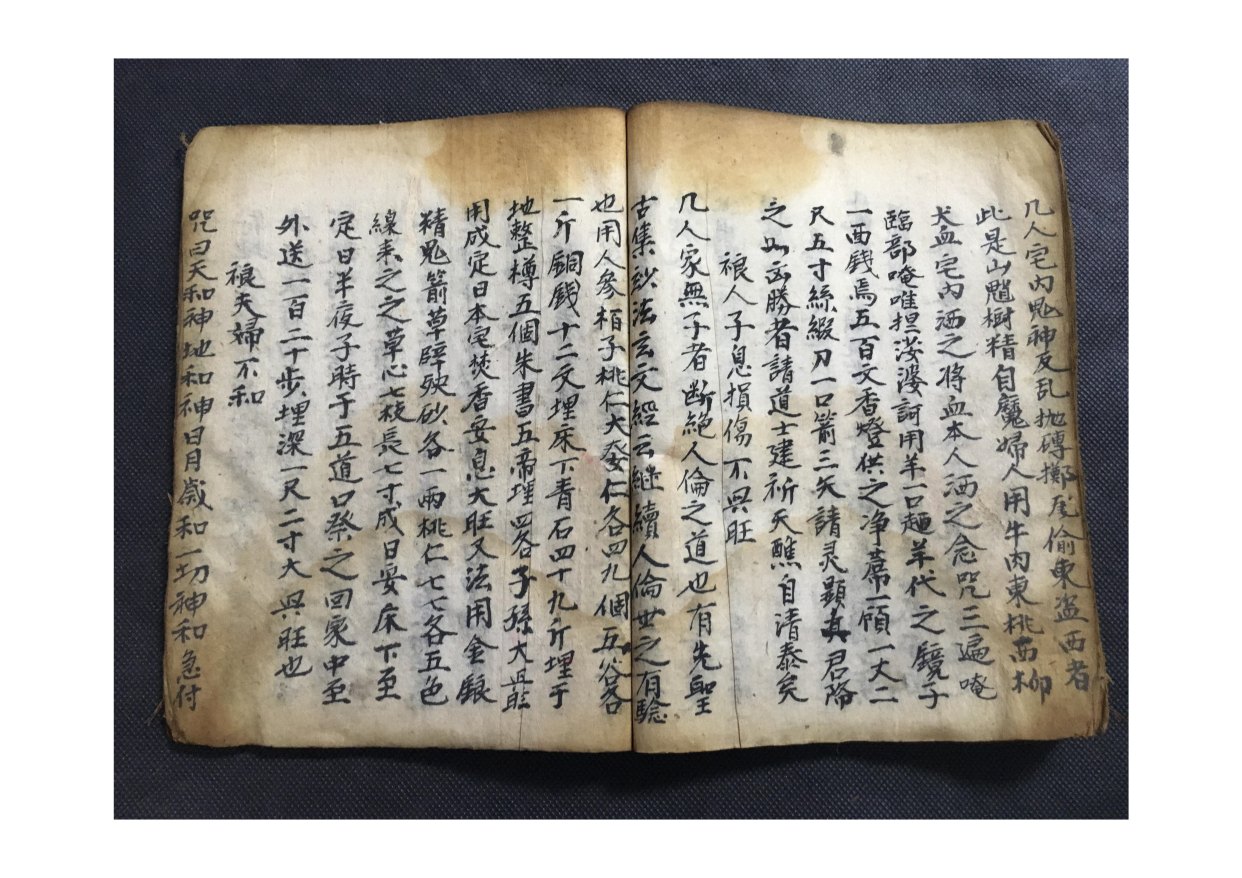 凡人宅內鬼神反乱抛磚擲瓦偷東盜西者
此是山魈樹精自魔婦人用牛肉東桃西柳
犬血宅內洒之將血本人洒之念咒三遍唵
臨部唵唯担淤漊訶用羊一口麺羊代之鏡子
一面錢馬五百文香燈供之净蓆一領一丈二
尺五寸絲緞刀一口箭三矢請灵顯真君降
之如凶勝者請道士建祈天醮自清泰矣
禳人子息損傷不興旺
凡人家無子者断絕人倫之道也有先聖
古集訬法玄文經云継續人倫世之有驗
也用人參栢子桃仁大麥仁各四九個五谷各
一斤銅錢十二文埋床下青石四十九斤埋于
地整樽五個朱書五帝埋四各子孫大旺
用成定日本宅焚香安息大旺又法用金銀
精鬼箭草辟殃砂各一兩桃仁七七各五色
線束之之草心七枝長七寸成日安床下至
定日半夜子時于五道口祭之回家中至
外送一百二十步埋深一尺二寸大興旺也
禳夫婦不和
咒曰天和神地和神日月歲和一切神和急付